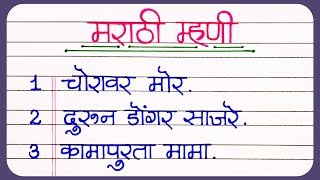 मराठी म्हणी
1 चोरावर मोर.
2 दुरून डोंगर साजरे.
3 कामापुरता मामा.